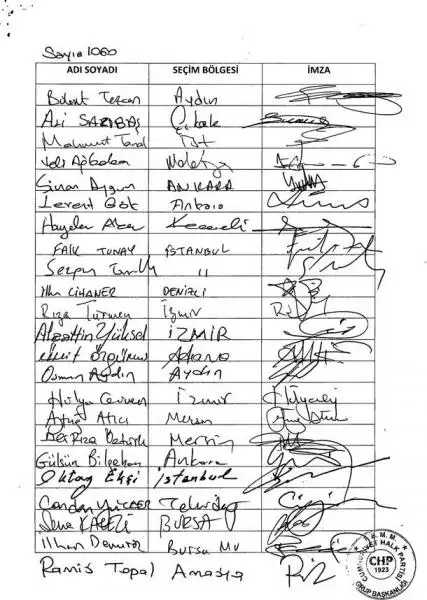 Sayı: 1060
ADI SOYADI SEÇİM BÖLGESİ İMZA
Bülent Tezcan Aydın
Ali SARIBAŞ Ç.kale
Mahmut Tanal İst
Veli Ağbaba Malatya
Sinan Aygün ANKARA
Levent Gök Ankara
Haydar Akar Kocaeli
FAİK TUNAY İSTANBUL
Sezgin Tanrıkulu "
İlhan CİHANER DENİZLİ
Rıza Türmen İzmir
Alaattin Yüksel İZMİR
Ümit Özgümüş Adana
Osman Aydın Aydın
Hülya Güven İzmir
Aytuğ Atıcı Mersin
Ali Rıza Öztürk Mersin
Gülsün Bilgehan Ankara
Oktay Ekşi İstanbul
Candan YÜCEER Tekirdağ
Sena KALELİ BURSA
İlhan Demiröz Bursa MV
Ramis Topal Amasya
T.B.M.M.
CUMHURİYET HALK PARTİSİ
CHP
1923
GRUP BAŞKANLIĞI